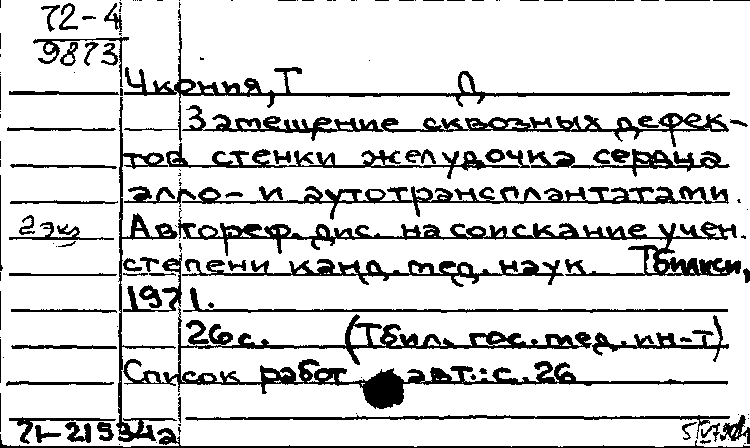 72-4
9873
Чкония, Т Д
Замещение сквозных дефек-
тов стенки желудочка сердца
алло- и аутотрансплантатами.
2 экз Автореф. дис. на соискание учен.
степени канд. мед. наук. Тбилиси,
1971.
26 с. (Тбил. гос. мед. ин-т)
Список работ авт.: с. 26
71-21934а